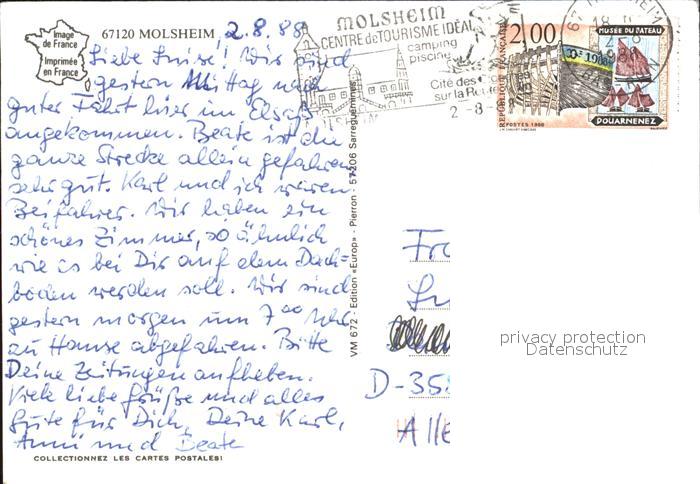 Image
de France
Imprimée
en France
67120 MOLSHEIM, 2.8.88
Liebe Luise! Wir sind
gestern Mittag nach
guter Fahrt hier im Elsaß
angekommen. Beate ist die
ganze Strecke allein gefahren
sehr gut. Karl und ich waren
Beifahrer. Wir haben ein
schönes Zimmer, so ähnlich
wie es bei Dir auf dem Dach=
boden werden soll. Wir sind
gestern morgen um 7⁰⁰ Uhr
zu Hause abgefahren. Bitte
Deine Zeitungen aufheben.
Viele liebe Grüße und alles
Gute für Dich, Deine Karl,
Anni und Beate
COLLECTIONNEZ LES CARTES POSTALES!
VM 672 - Edition «Europ» - Pierron - 57206 Sarreguemines
MOLSHEIM
CENTRE de TOURISME IDÉAL
camping
piscine
Cité des
sur la Route
2-8-
2,00
RÉPUBLIQUE FRANÇAISE
MUSÉE DU BATEAU
DZ 1908
DOUARNENEZ
POSTES 1988
67 MOLSHEIM
18 H
2-8
Fr
Lu
D-35
Alle
privacy protection
Datenschutz